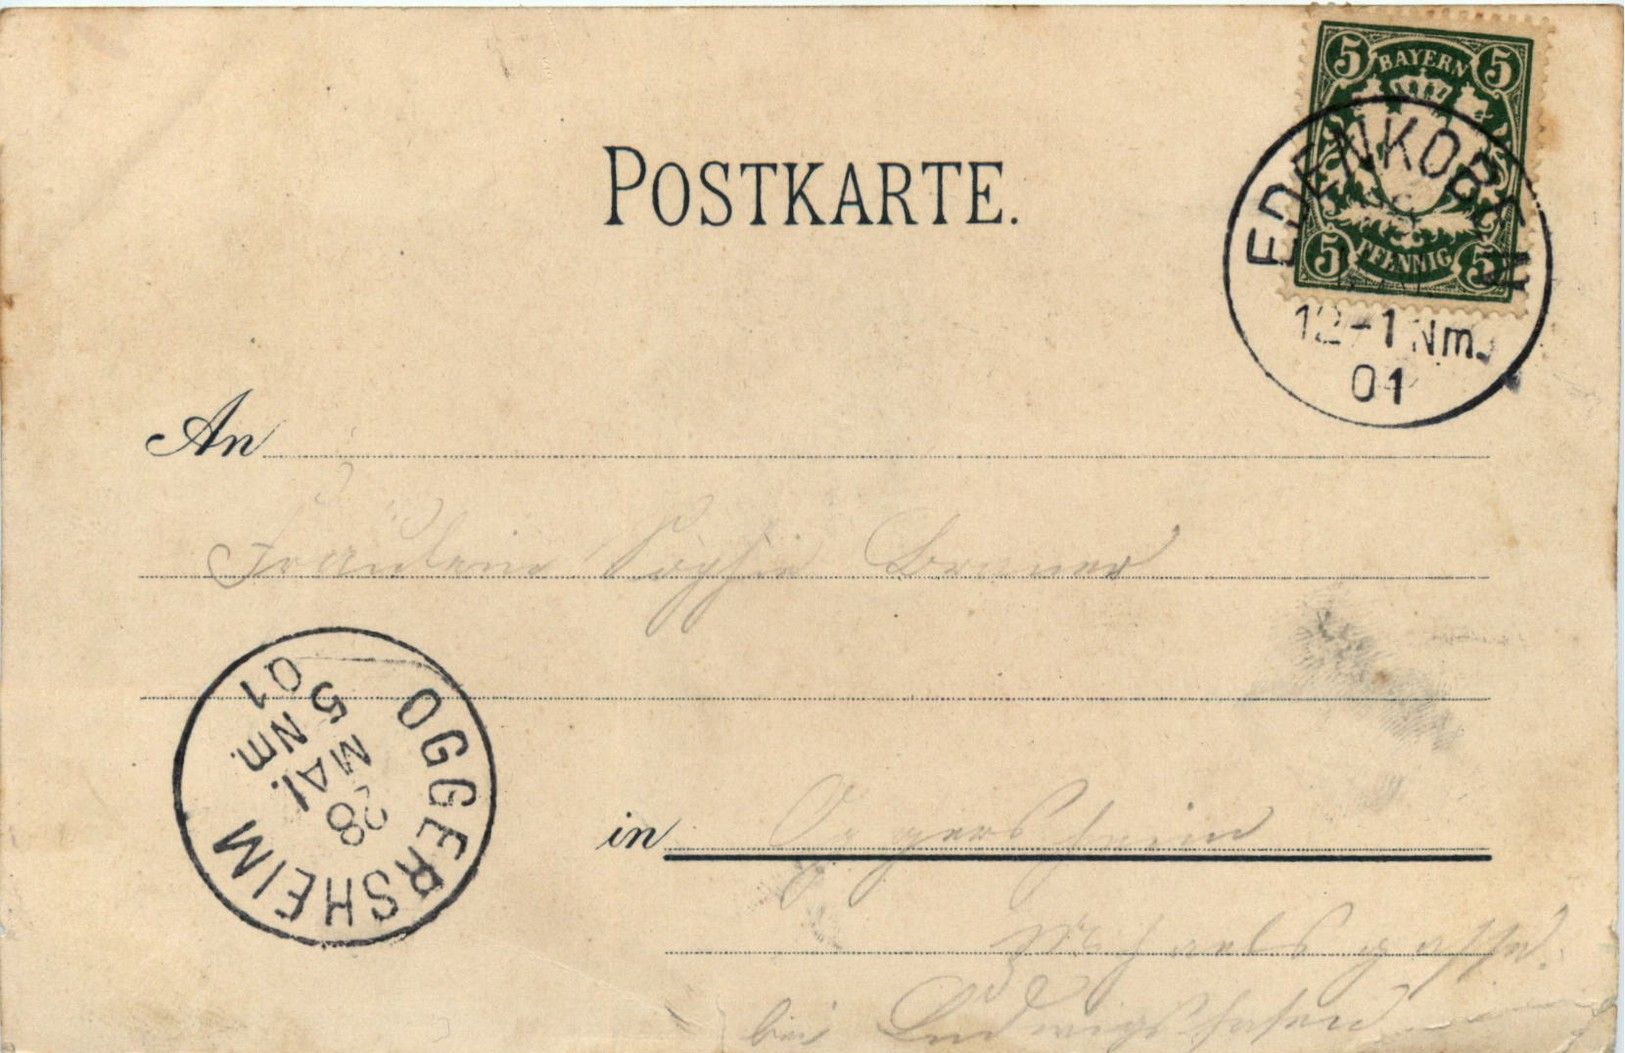 5 BAYERN 5
5 PFENNIG 5
EDENKOBEN
12-1 Nm.
01
POSTKARTE.
An
Fräulein Sophie
OGGERSHEIM
28
MAI.
5 Nm.
01
in Oggersheim
bei Ludwigshafen